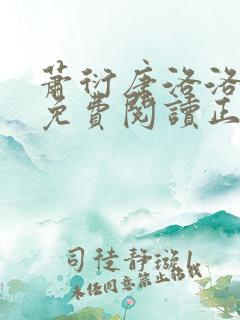 萧衍唐洛洛
免费阅读正
司徒静璇l
未经同意禁止转载